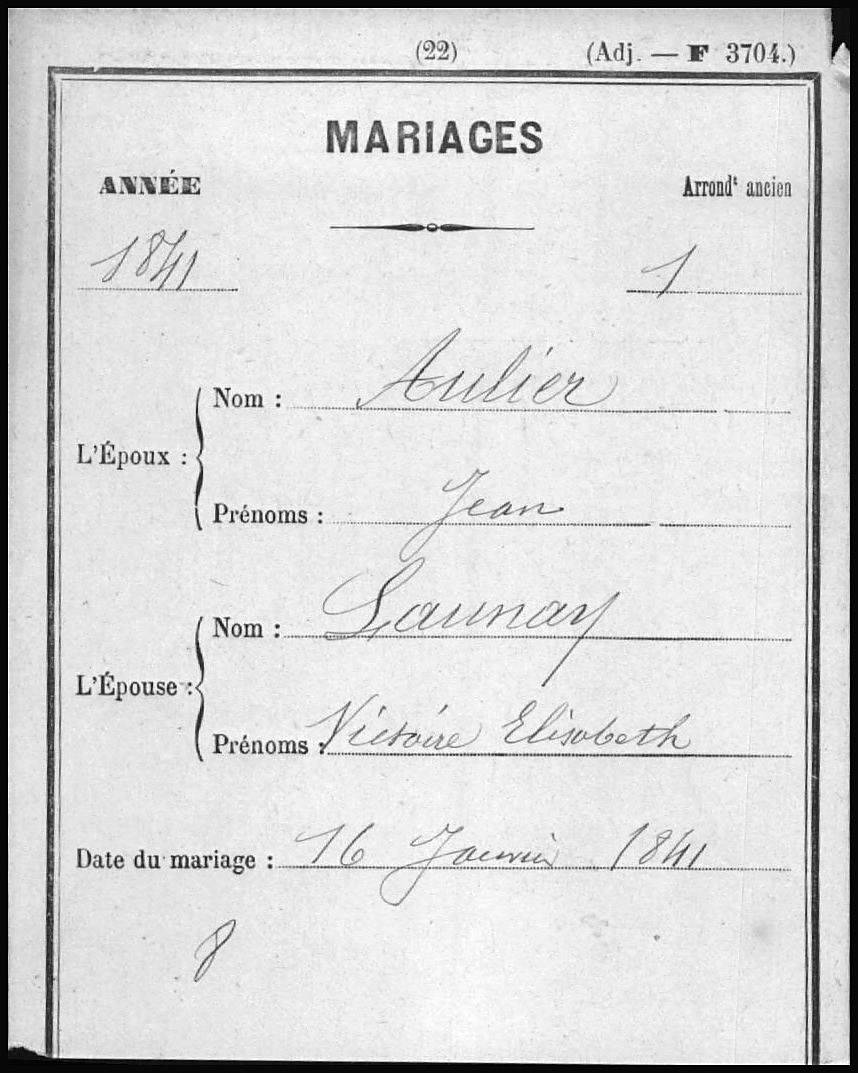 (22) (Adj. — F 3704.)
MARIAGES
ANNÉE Arrondt ancien
1841 1
Nom : Aulier
L'Époux :
Prénoms : Jean
Nom : Launay
L'Épouse :
Prénoms : Victoire Elisabeth
Date du mariage : 16 Janvier 1841
8